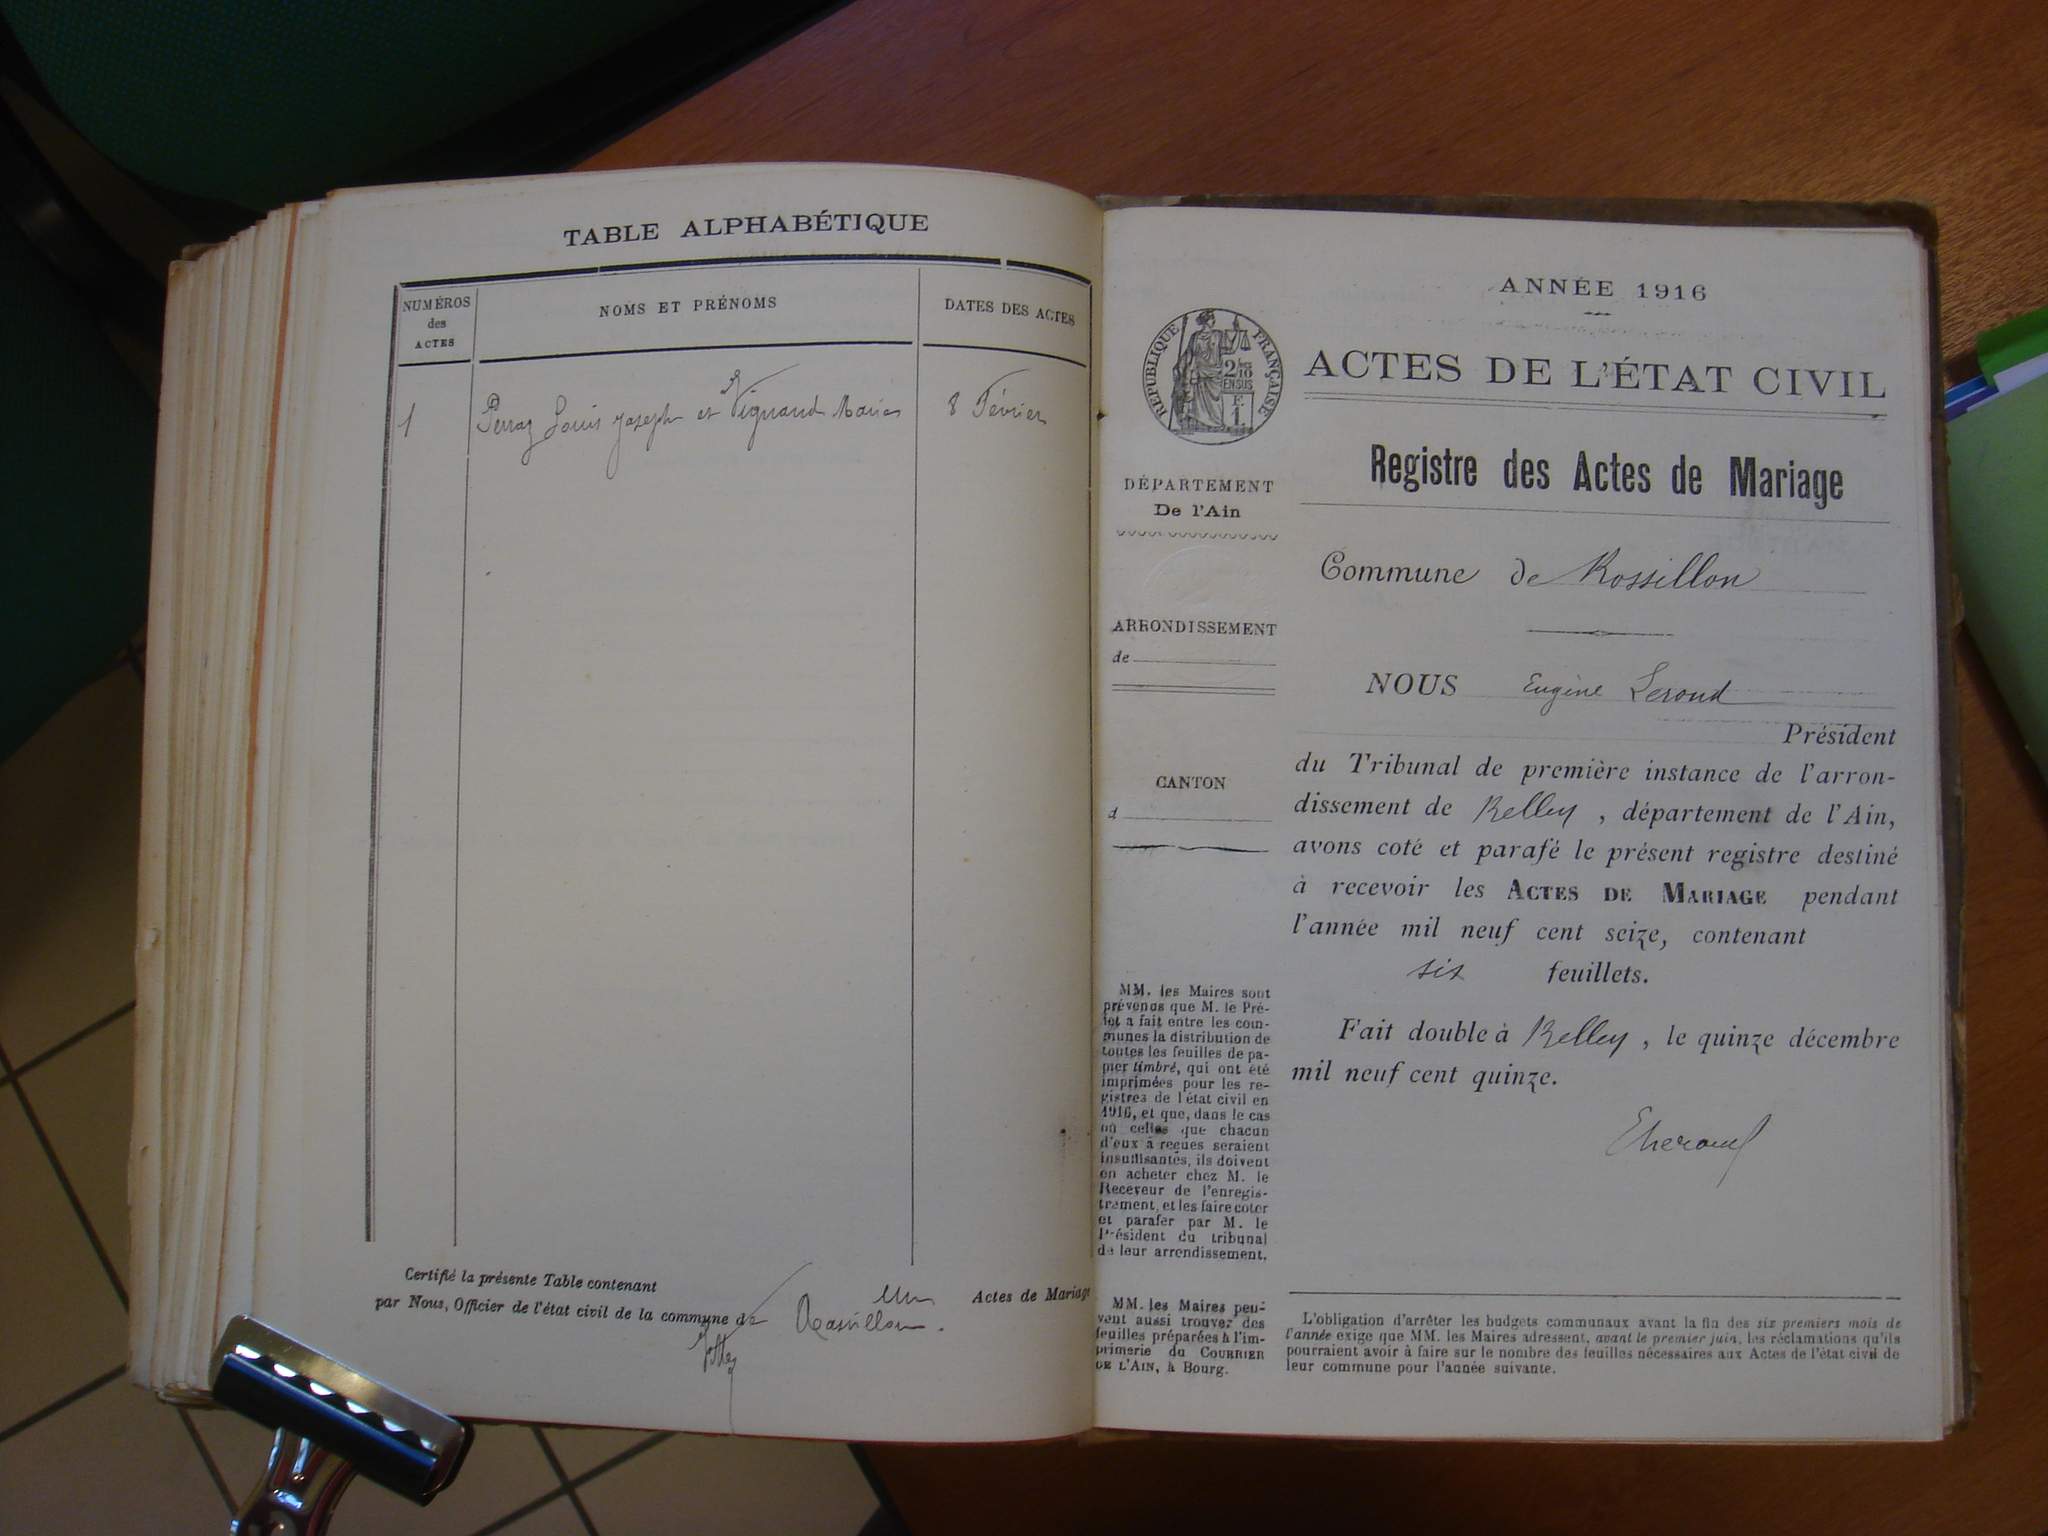 TABLE ALPHABÉTIQUE
NUMÉROS
des
ACTES
NOMS ET PRÉNOMS
DATES DES ACTES
1
Perraz Louis Joseph et Vignand Marie
8 Février
Certifié la présente Table contenant un Actes de Mariage
par Nous, Officier de l'état civil de la commune de Rossillon.
ANNÉE 1916
RÉPUBLIQUE FRANÇAISE
2/10
EN SUS
F.
1
ACTES DE L'ÉTAT CIVIL
Registre des Actes de Mariage
DÉPARTEMENT
De l'Ain
ARRONDISSEMENT
de
CANTON
d
MM. les Maires sont
prévenus que M. le Pré-
fet a fait entre les com-
munes la distribution de
toutes les feuilles de pa-
pier timbré, qui ont été
imprimées pour les re-
gistres de l'état civil en
1916, et que, dans le cas
où celles que chacun
d'eux a reçues seraient
insuffisantes, ils doivent
en acheter chez M. le
Receveur de l'enregis-
trement, et les faire coter
et parafer par M. le
Président du tribunal
de leur arrondissement.
MM. les Maires peu-
vent aussi trouver des
feuilles préparées à l'im-
primerie du COURRIER
DE L'AIN, à Bourg.
Commune de Rossillon
NOUS Eugène Lerond
Président
du Tribunal de première instance de l'arron-
dissement de Belley, département de l'Ain,
avons coté et parafé le présent registre destiné
à recevoir les ACTES DE MARIAGE pendant
l'année mil neuf cent seize, contenant
six feuillets.
Fait double à Belley, le quinze décembre
mil neuf cent quinze.
L'obligation d'arrêter les budgets communaux avant la fin des six premiers mois de
l'année exige que MM. les Maires adressent, avant le premier juin, les réclamations qu'ils
pourraient avoir à faire sur le nombre des feuilles nécessaires aux Actes de l'état civil de
leur commune pour l'année suivante.